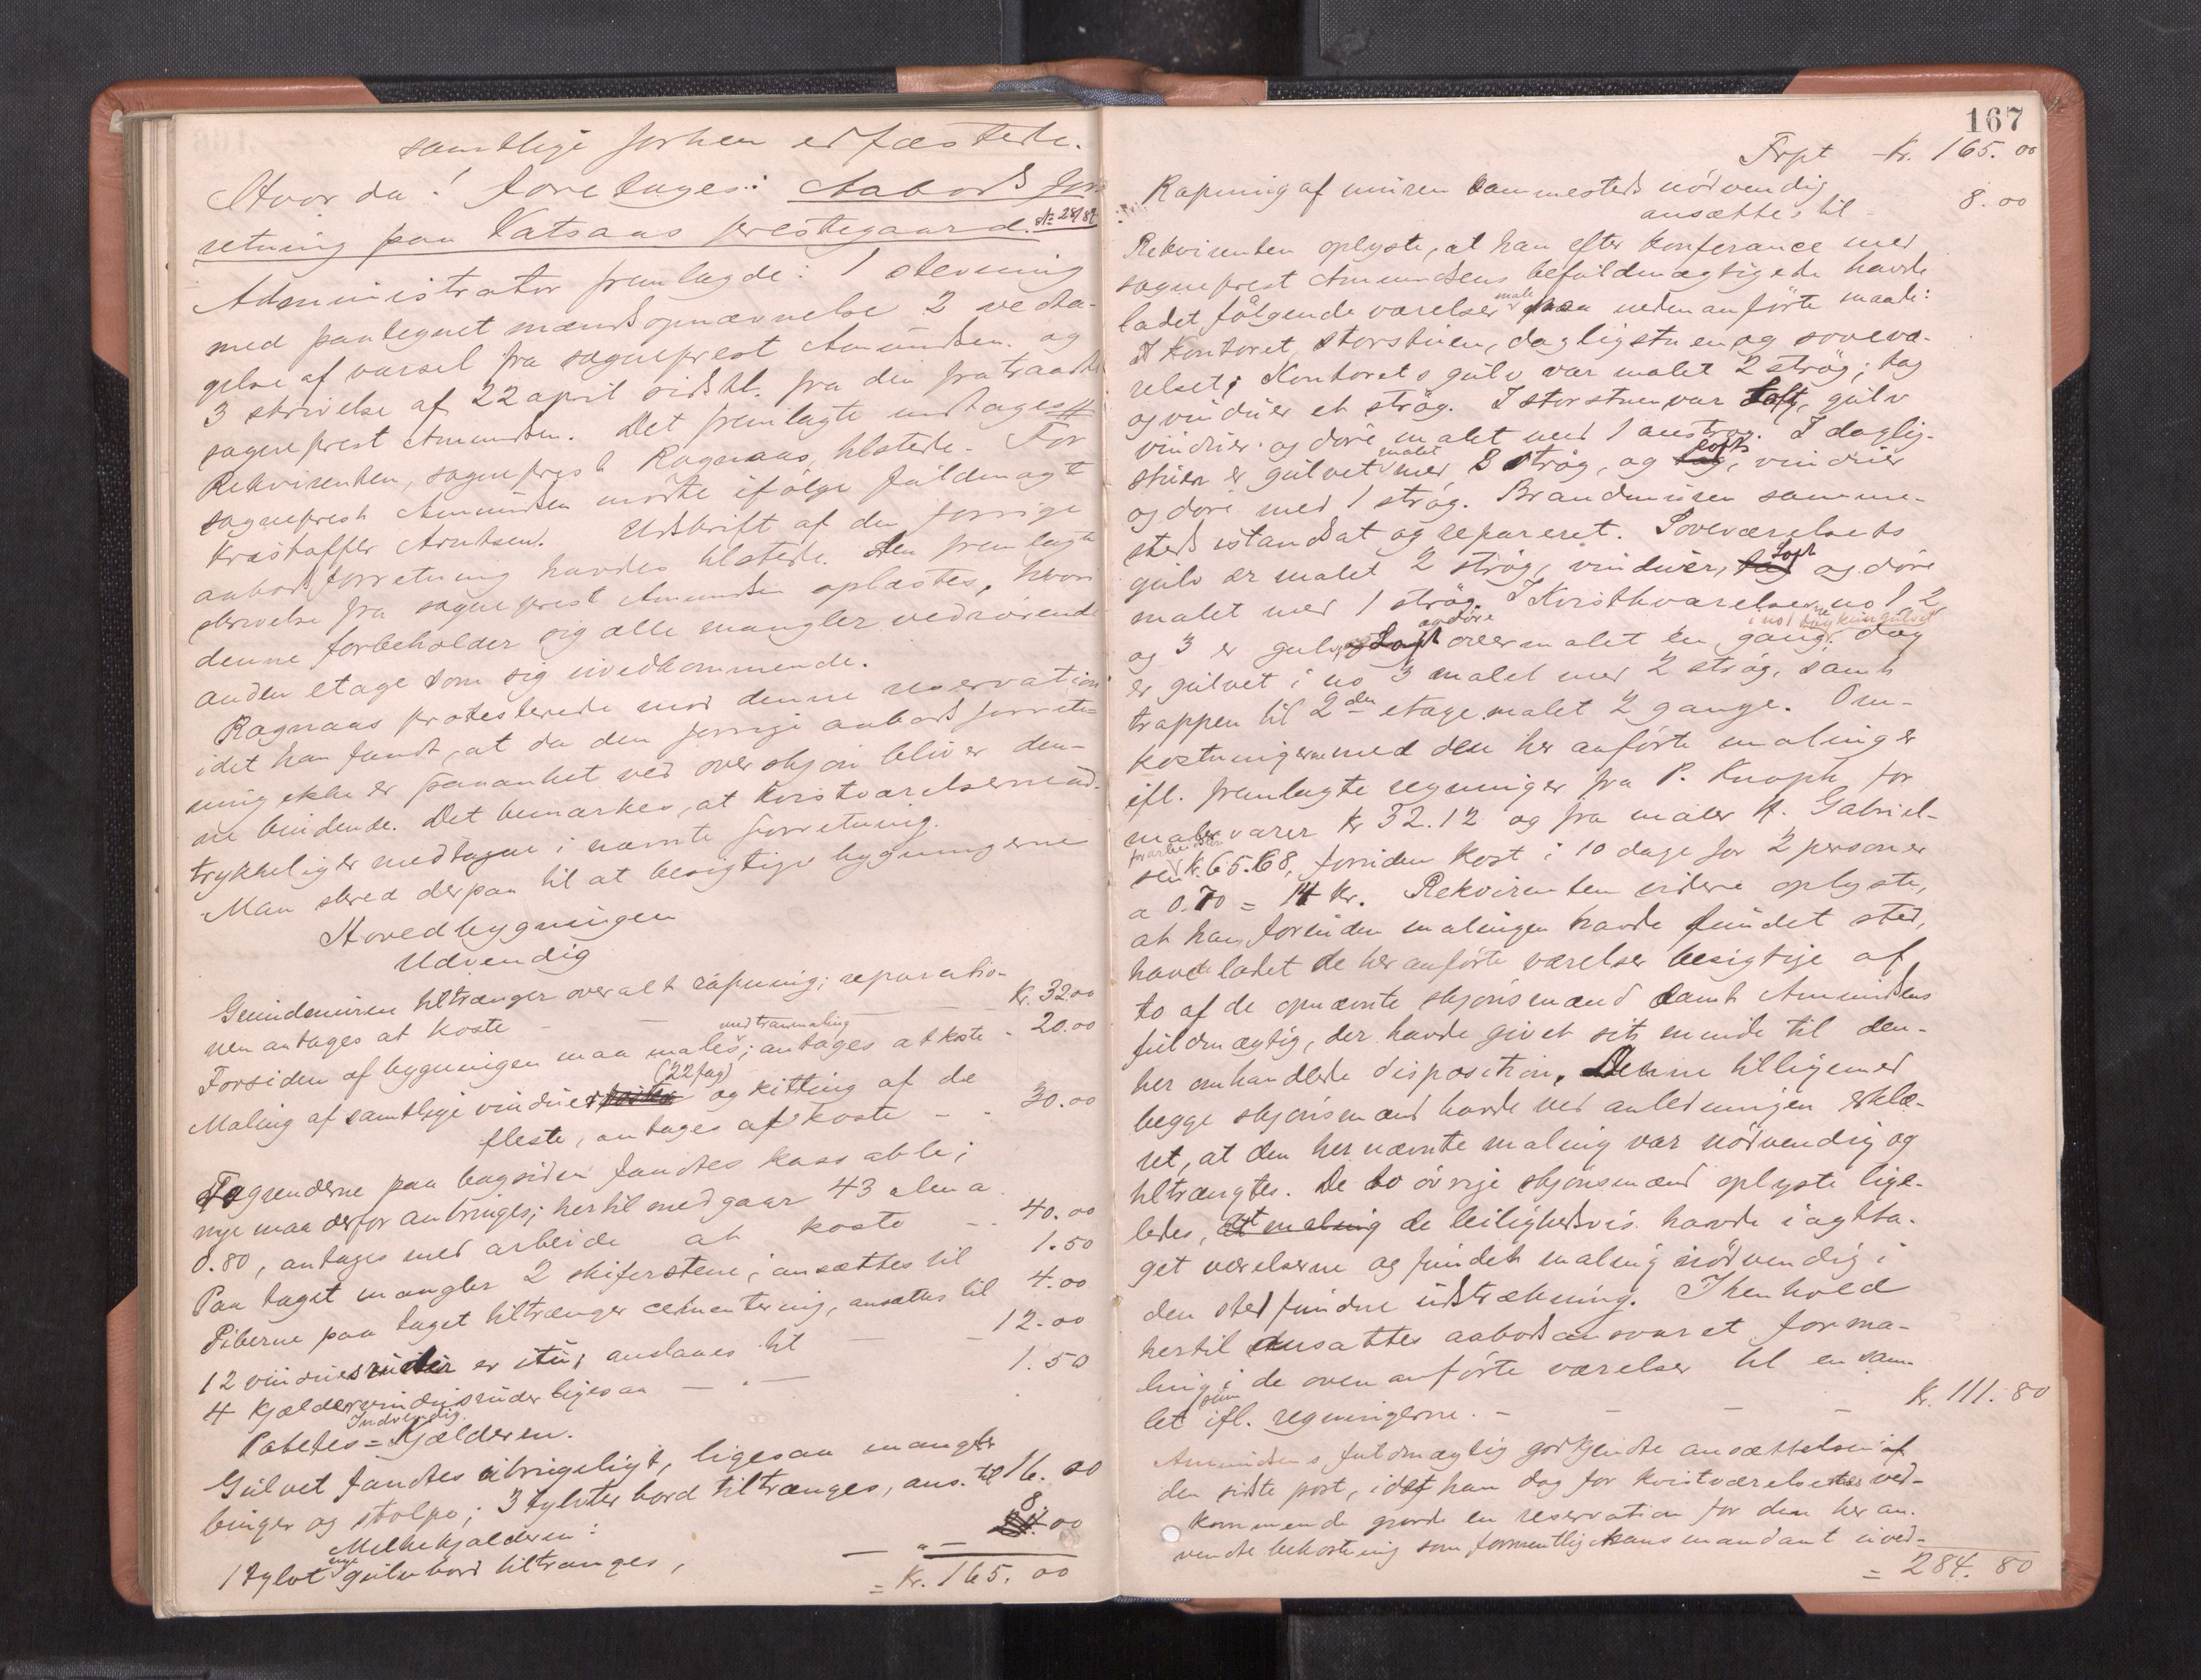 samtlige forhen edfæstede.
Hvorda! foretages: Aabods for
retning paa Vatsaas prestegaard. № 28/89
Administrator fremlagde: 1 stevning
med paategnet mændsopnævnelse 2 vedta-
gelse af varsel fra sogneprest Amundsen og
3 skrivelse af 22 april sidstl. fra den fratraadte
sogneprest Amundsen. Det fremlagte indtages #
Rekvirenten, sogneprest Ragnaas, tilstede. For
sogneprest Amundsen mødte ifølge fuldmagt
Kristoffer Arntsen. Udskrift af den forrige
aabodsforretning havdes tilstede. Den fremlagte
skrivelse fra sogneprest Amundsen oplæstes, hvori
denne forbeholder sig alle mangler vedrørende
anden etage som sig uvedkommende.
Ragnaas protesterede mod denne reservation
idet han fandt, at da den forrige aabodsforret-
ning ikke er paaanket ved overskjøn bliver den-
ne bindende. Det bemærkes, at kvistværelserne ud-
trykkelig er medtagne i nævnte forretning.
Man skred derpaa til at besigtige bygningerne
Hovedbygningen
Udvendig
Grundmuren tiltrænger overalt rapning; reparatio-
nen antages at koste - - - Kr. 32.00
Forsiden af bygningen maa males med tranmaling; antages at koste - 20.00
Maling af samtlige vinduer (22 fag) og kitting af de
fleste, antages at koste - - 30.00
Tagrenderne paa bagsiden fandtes kassable;
nye maa derfor anbringes; hertil medgaar 43 alen a
0.80, antages med arbeide at koste - - 40.00
Paa taget mangler 2 skiferstene; ansættes til 1.50
Piberne paa taget tiltrænger cementering, ansættes til 4.00
12 vinduesruder er itu; anslaaes til - - 12.00
4 kjældervinduesruder ligesaa - " - 1.50
Indvendig.
Potetes = Kjælderen.
Gulvet fandtes ubrugeligt, ligesaa mangler
binger og stolpe; 3 tylvter bord tiltrænges, ans. til 16.00
Melkekjælderen:
1 tylvt nye gulvbord tiltrænges, - " - 8.00
= Kr. 165.00
167
Frpt Kr. 165.00
Rapning af muren sammesteds nødvendig
ansættes til - 8.00
Rekvirenten oplyste, at han efter konferance med
sogneprest Amundsens befuldmægtigede havde
ladet følgende værelser male paa nedenanførte maade:
I kontoret, storstuen, dagligstuen og soveva-
relset; Kontorets gulv var malet 2 strøg; tag
og vinduer et strøg. I storstuen var loft, gulv
vinduer og døre malet med 1 anstrøg. I daglig-
stuen er gulvet malet med 2 strøg, og loft, vinduer
og døre med 1 strøg. Brandmuren samme-
steds istandsat og repareret. Soveværelsets
gulv er malet 2 strøg, vinduer, Loft og døre
malet med 1 strøg. I Kvistværelserne no 1, 2
og 3 er gulv og døre overmalet en gang, i no 1 dog kun gulvet dog
er gulvet i no 3 malet med 2 strøg, samt
trappen til 2den etage malet 2 gange. Om-
kostningerne med den her anførte maling er
ifl. fremlagte regninger fra P. Knoph for
malervarer kr 32.12 og fra maler A. Gabriel-
sen for arbeidsløn kr. 65.68, foruden kost i 10 dage for 2 personer
a 0.70 = 14 kr. Rekvirenten videre oplyste,
at han, forinden malingen havde fundet sted,
havde ladet de her anførte værelser besigtige af
to af de opnævnte skjønsmænd samt Amundsens
fuldmægtig, der havde givet sit minde til den-
her omhandlede disposition. Denne tilligemed
begge skjønsmænd havde ved anledningen erklæ-
ret, at den her nævnte maling var nødvendig og
tiltrængtes. De to øvrige skjønsmænd oplyste lige-
ledes, at maling de leilighedsvis havde iagtta-
get værelserne og fundet maling nødvendig i
den stedfundne udstrækning. I henhold
hertil ansattes aabodsansvaret for ma-
ling i de ovenanførte værelser til en sam-
let sum ifl. regningerne. - - - - Kr. 111.80
Amundsens fuldmægtig godkjendte ansættelsen af
den sidste post, idet han dog for kvistværelsernes ved-
kommende gjorde en reservation for den her an-
vendte bekostning som formentlig hans mandant uved-
= 284.80